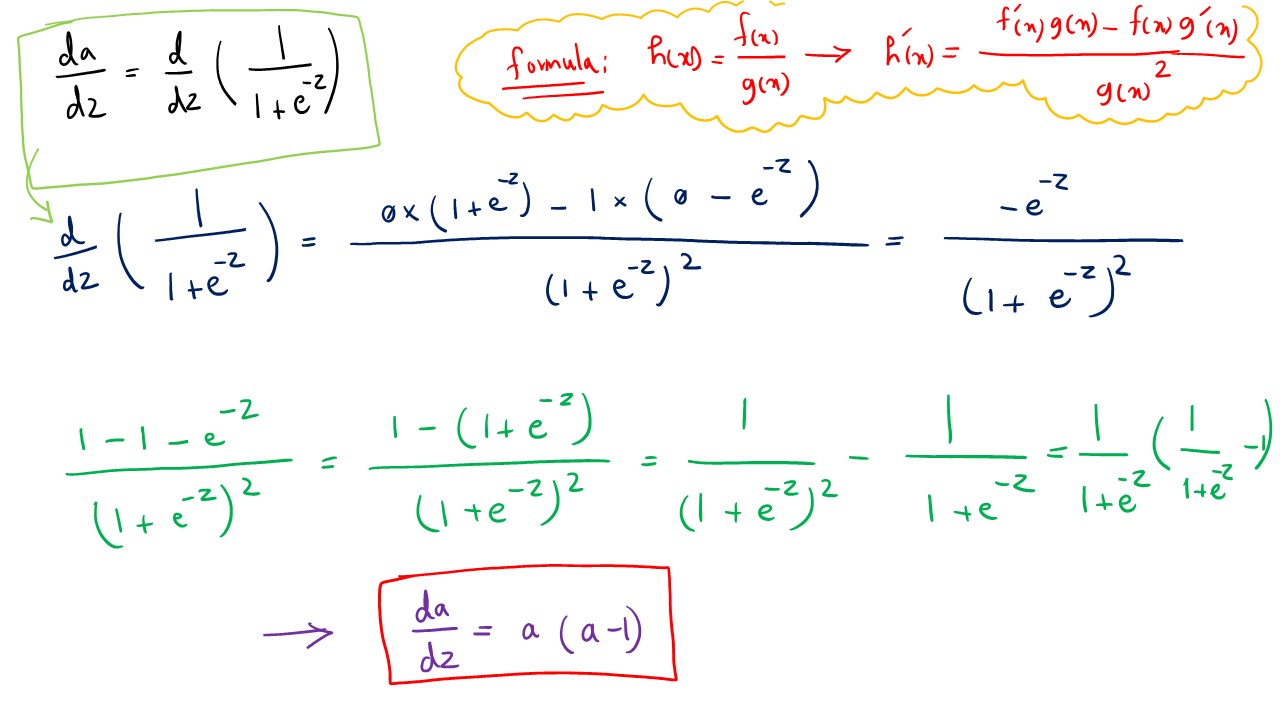 da/dz = d/dz ( 1/(1+e^-z) )
formula: h(x) = f(x)/g(x) → h′(x) = (f′(x) g(x) − f(x) g′(x))/g(x)^2
d/dz ( 1/(1+e^-z) ) = (0×(1+e^-z) − 1×(0 − e^-z))/(1+e^-z)^2 = −e^-z/(1+e^-z)^2
(1−1−e^-z)/(1+e^-z)^2 = (1−(1+e^-z))/(1+e^-z)^2 = 1/(1+e^-z)^2 − 1/(1+e^-z) = 1/(1+e^-z) (1/(1+e^-z) −1)
→ da/dz = a (a−1)